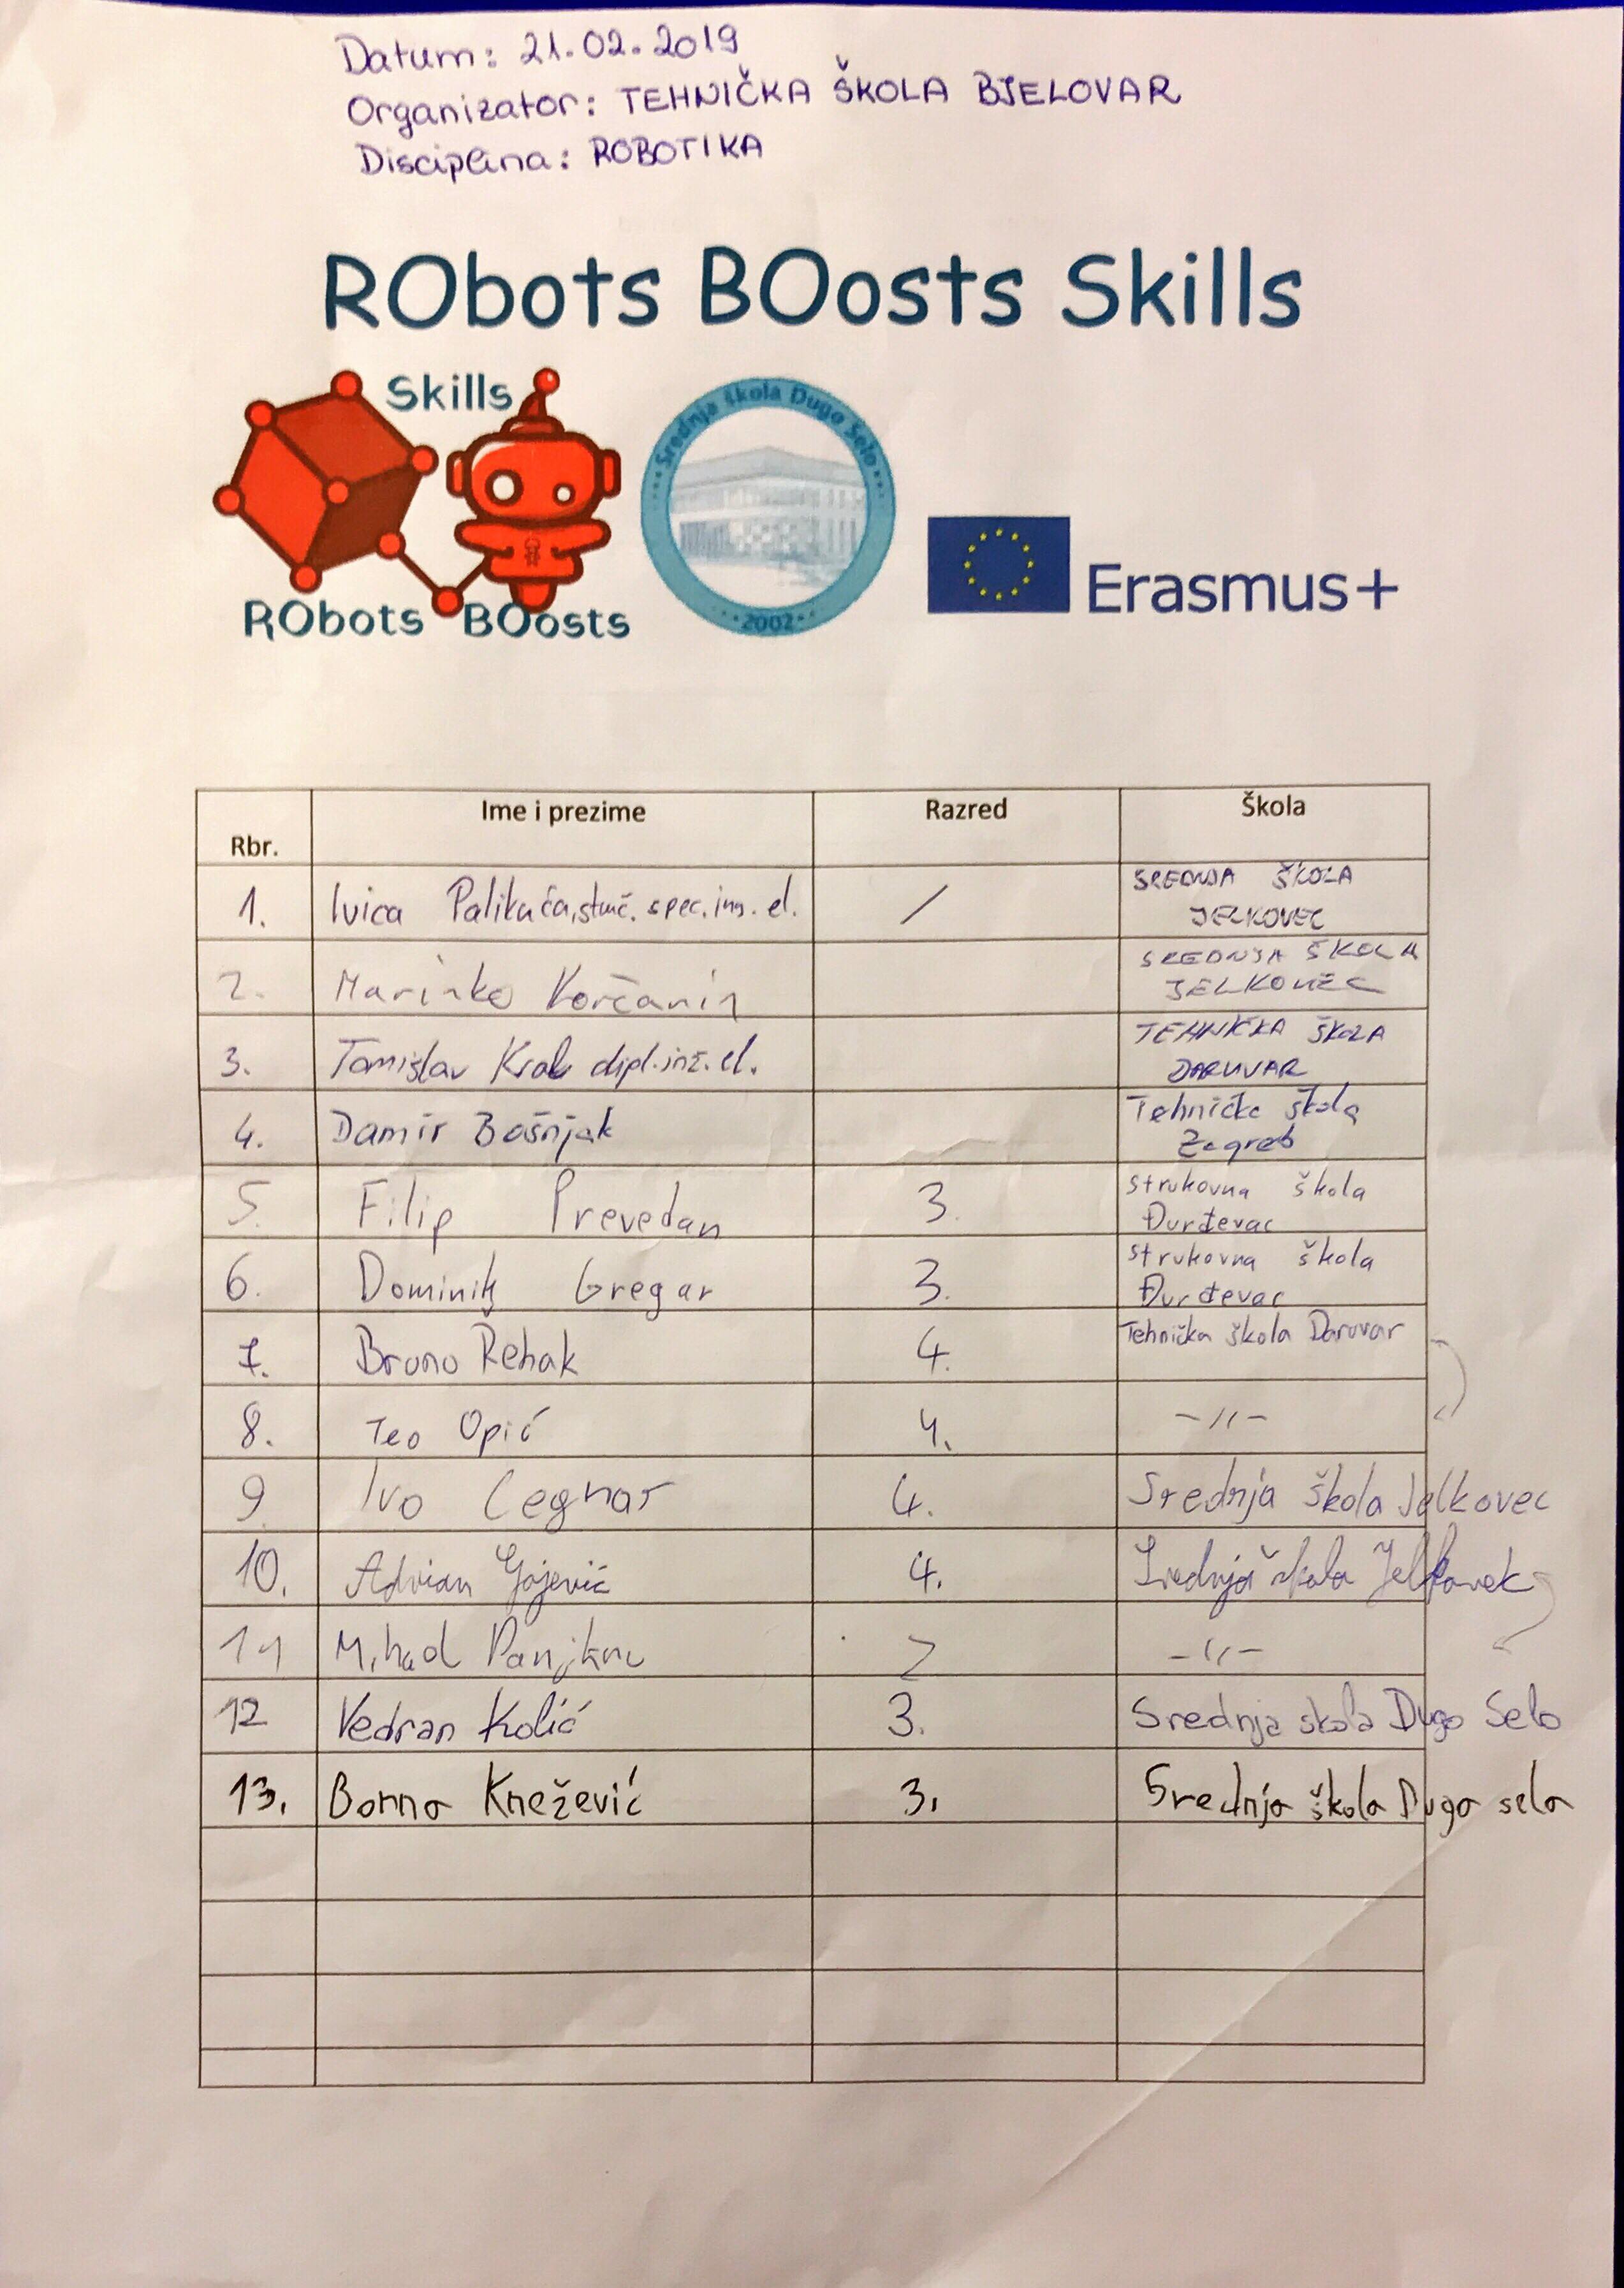 Datum: 21.02.2019
Organizator: TEHNIČKA ŠKOLA BJELOVAR
Disciplina: ROBOTIKA
RObots BOosts Skills
Skills
RObots BOosts
Srednja škola Dugo Selo
2002
Erasmus+
Rbr. Ime i prezime Razred Škola
1. Ivica Palikuća, struč. spec. ing. el. / SREDNJA ŠKOLA
JELKOVEC
2. Marinko Korčanin SREDNJA ŠKOLA
JELKOVEC
3. Tomislav Kral dipl.inž.el. TEHNIČKA ŠKOLA
DARUVAR
4. Damir Bošnjak Tehnička škola
Zagreb
5. Filip Prevedan 3. Strukovna škola
Đurđevac
6. Dominik Gregar 3. Strukovna škola
Đurđevac
7. Bruno Řehak 4. Tehnička škola Daruvar
8. Teo Opić 4. -//-
9. Ivo Cegnar 4. Srednja škola Jelkovec
10. Adrian Gojević 4. Srednja škola Jelkovec
11 -//-
12 Vedran Kolić 3. Srednja skola Dugo Selo
13. Borna Knežević 3. Srednja škola Dugo selo